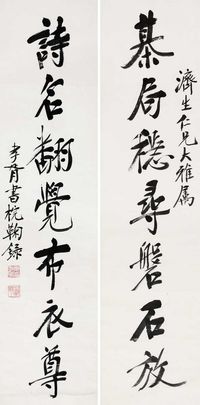 濟生仁兄大雅屬
碁局穩尋磐石放
詩名翻覺布衣尊
胥書枕鞠錄